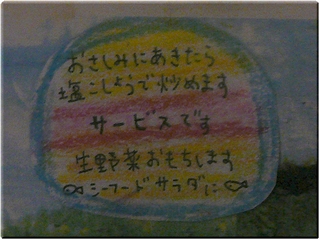 おさしみにあきたら
塩こしょうで炒めます
サービスです
生野菜おもちします
シーフードサラダに